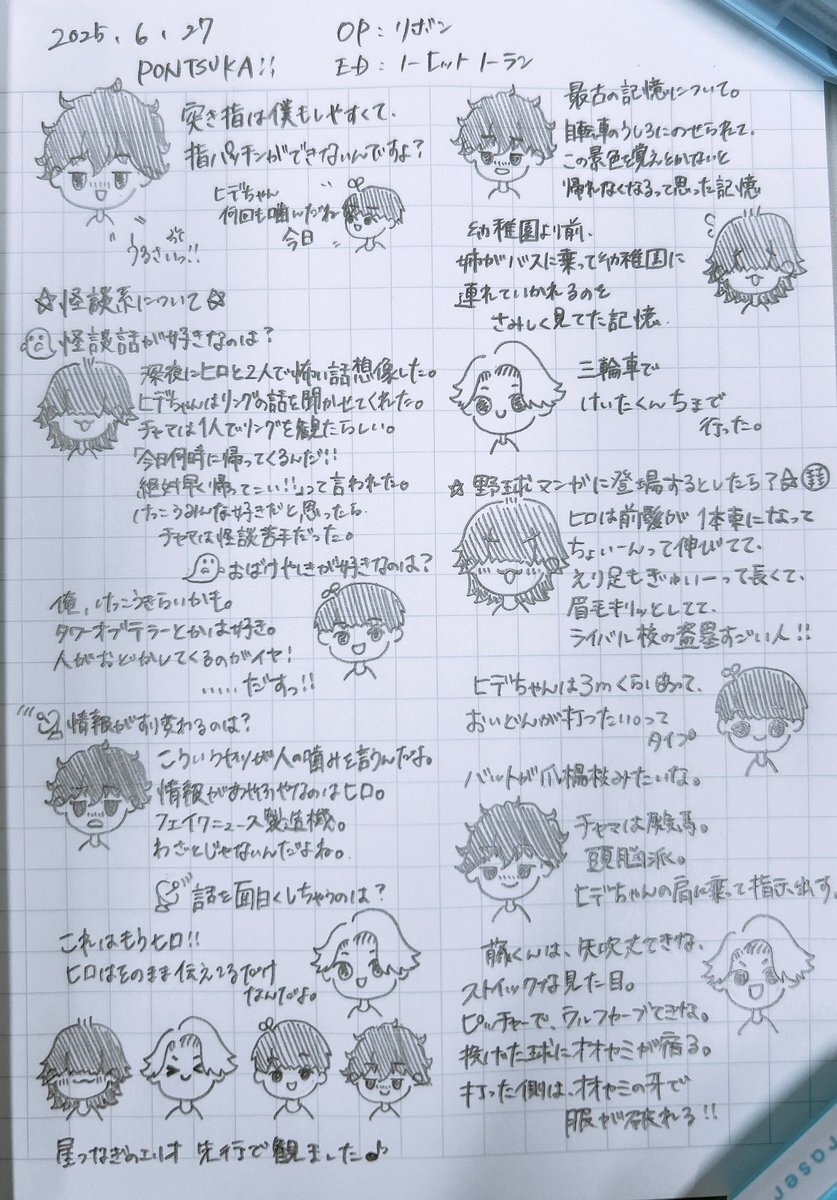 2025.6.27 OP:リボン
PONTSUKA!! ED:ノーヒットノーラン
突き指は僕もしやすくて、
指パッチンができないんですよ?
ヒデちゃん
何回も噛んだね
今日
うるさいっ!!
☆怪談系について☆
怪談話が好きなのは?
深夜にヒロと2人で怖い話想像した。
ヒデちゃんはリングの話を聞かせてくれた。
チャマは1人でリングを観たらしい。
「今日何時に帰ってくるんだ!!
絶対早く帰ってこい!!」って言われた。
けっこうみんな好きだと思ったら
チャマは怪談苦手だった。
おばけやしきが好きなのは?
俺、けっこうきらいかも。
タワーオブテラーとかは好き。
人がおどかしてくるのがイヤ!
……だすっ!!
情報がすり変わるのは?
こういうヤツが人の噛みを言うんだよ。
情報があやふやなのはヒロ。
フェイクニュース製造機。
わざとじゃないんだよね。
話を面白くしちゃうのは?
これはもうヒロ!!
ヒロはそのまま伝えてるだけ
なんだよ。
星つなぎのエリオ 先行で観ました♪
最古の記憶について。
自転車のうしろにのせられて、
この景色を覚えとかないと
帰れなくなるって思った記憶
幼稚園より前、
姉がバスに乗って幼稚園に
連れていかれるのを
さみしく見てた記憶。
三輪車で
けいたくんちまで
行った。
☆野球マンガに登場するとしたら?☆
ヒロは前髪が1本束になって
ちょいーんって伸びてて、
えり足もぎゅいーって長くて、
眉毛キリッとしてて、
ライバル校の盗塁すごい人!!
ヒデちゃんは3mくらいあって、
おいどんが打つたい。って
タイプ
バットが爪楊枝みたいな。
チャマは殿馬。
頭脳派。
ヒデちゃんの肩に乗って指示出す。
藤くんは、矢吹丈てきな、
ストイックな見た目。
ピッチャーで、ウルフカーブてきな。
投げた球にオオカミが宿る。
打った側は、オオカミの牙で
服が破れる!!
raser